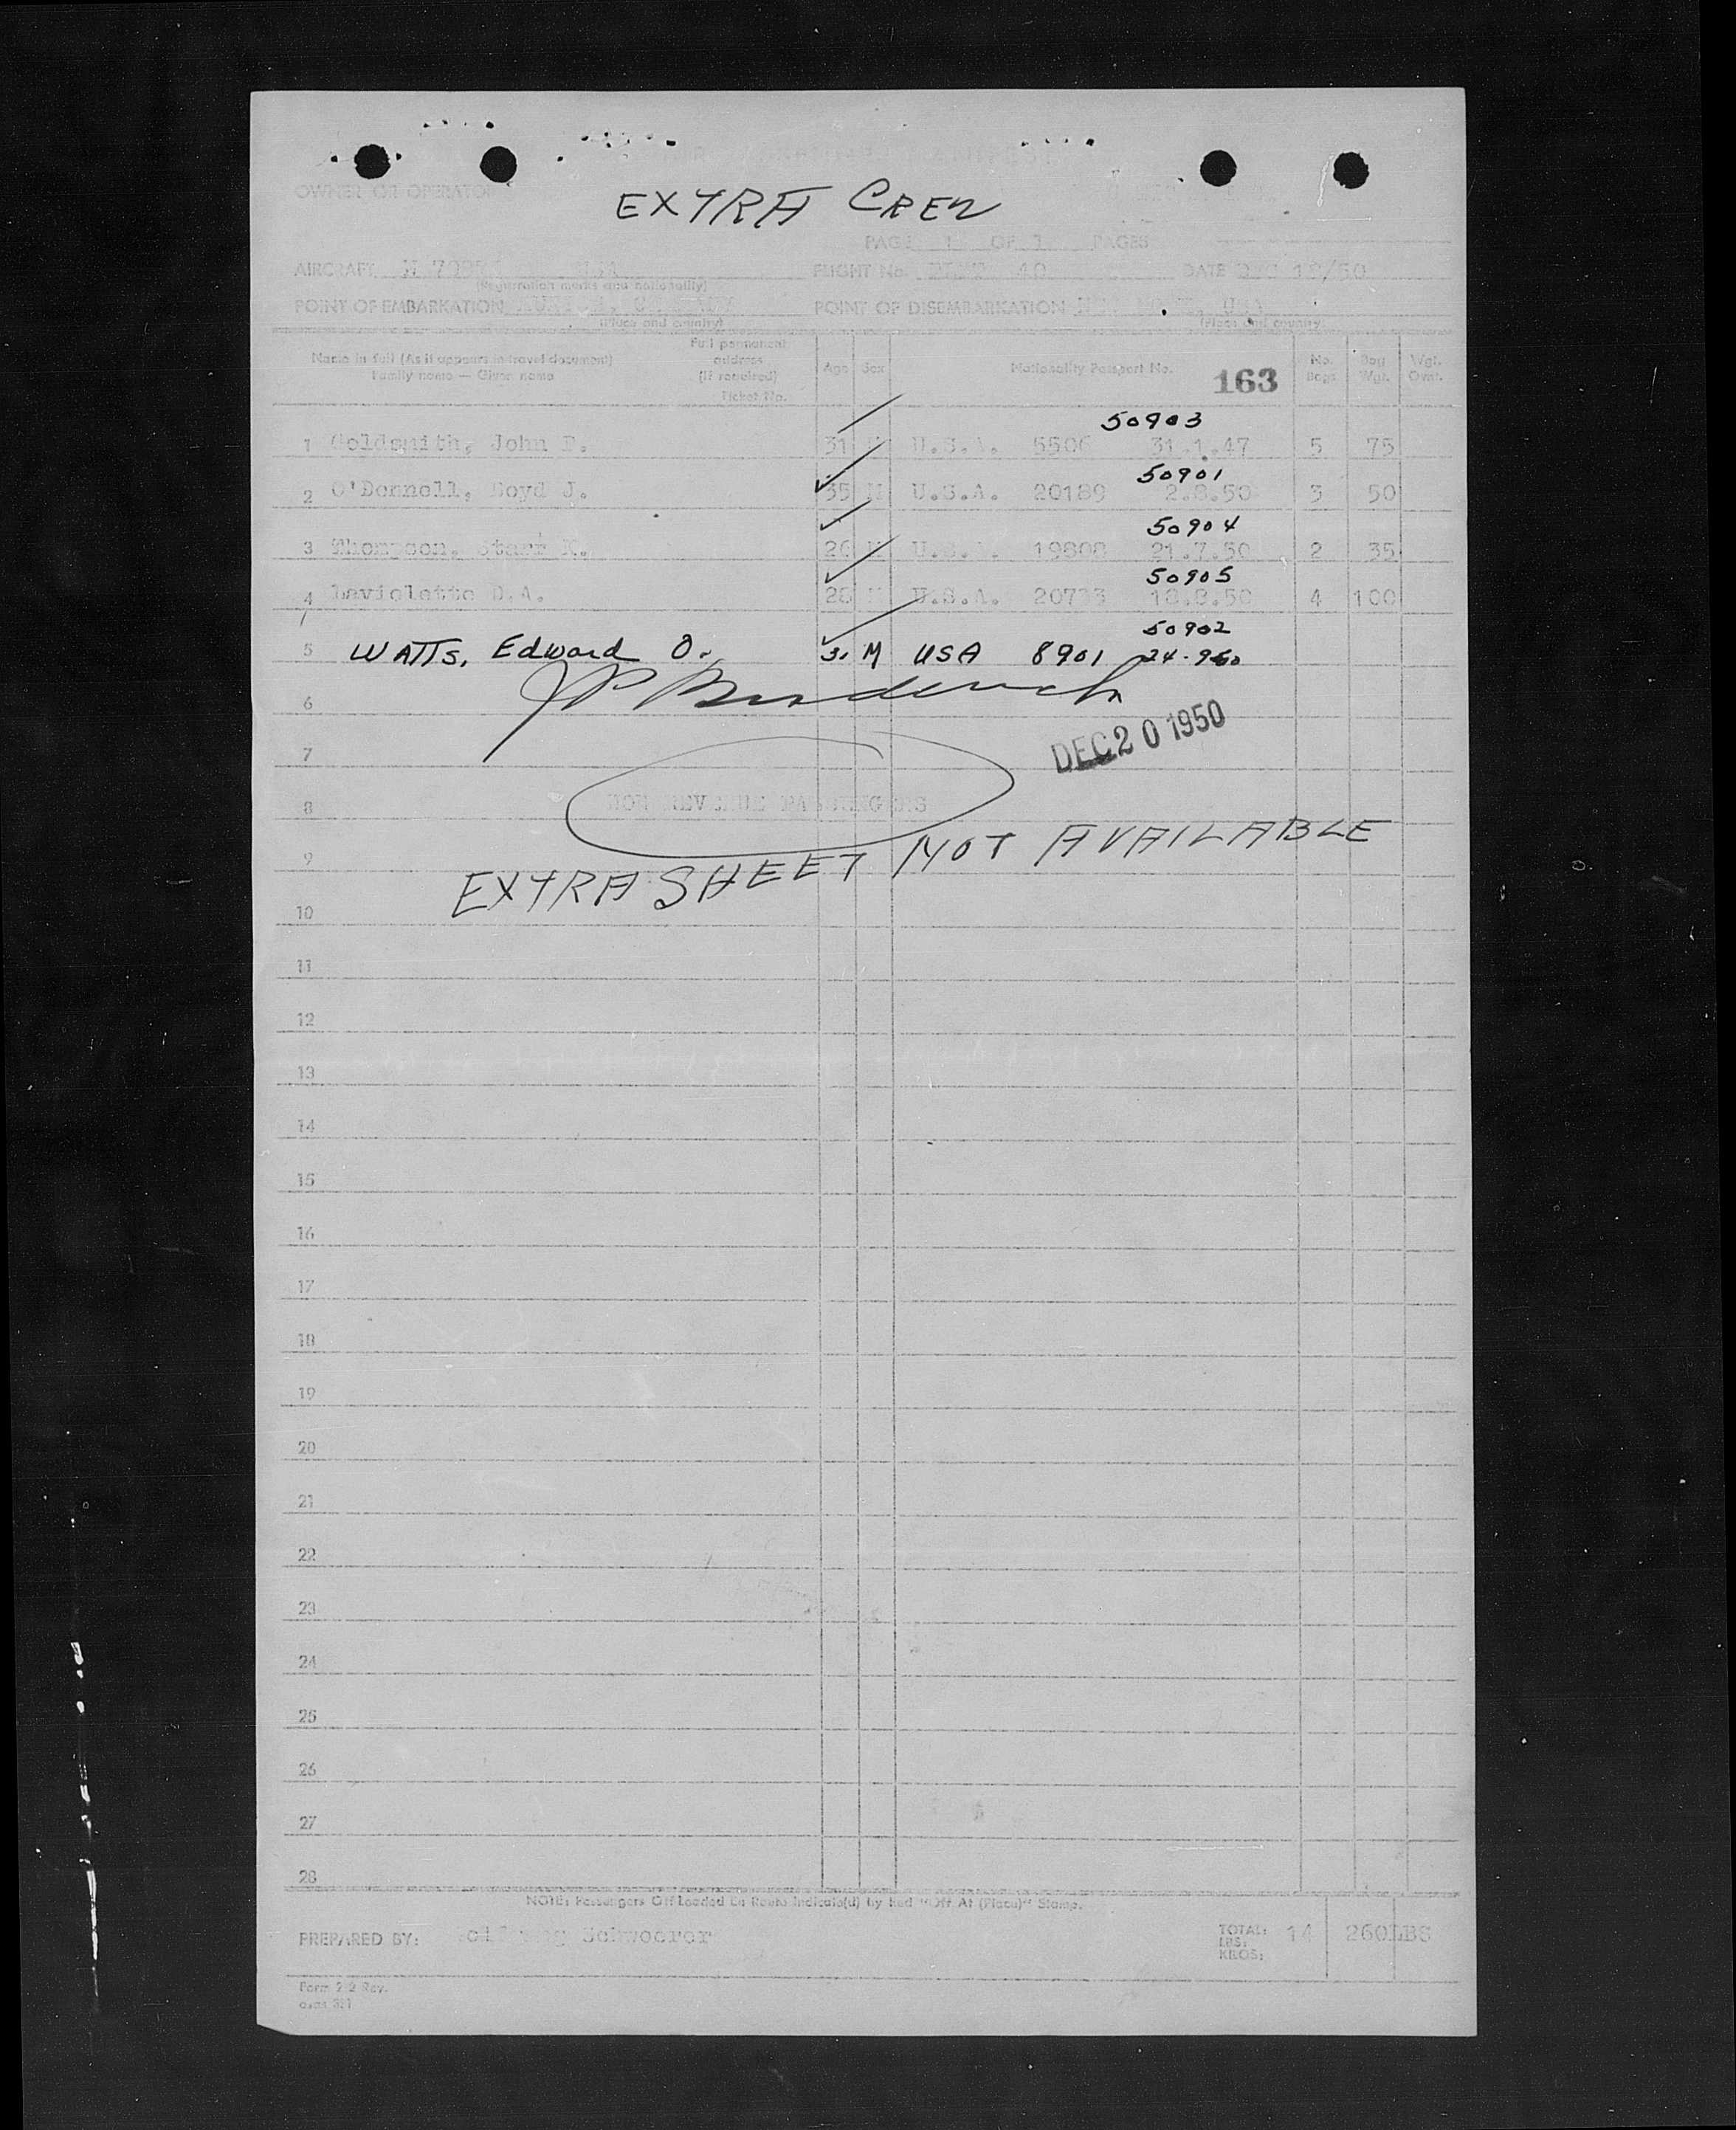 OWNER OR OPERATOR
EXTRA CREW
PAGE 1 OF 1 PAGES
AIRCRAFT FLIGHT No. 40 DATE DEC 18/50
(Registration marks and nationality)
POINT OF EMBARKATION POINT OF DISEMBARKATION
(Place and country) (Place and country)
Name in full (As it appears in travel document)
Family name — Given name
Full permanent address (if required) Ticket No.
Age Sex Nationality Passport No. 163 No. Bags Bag Wgt. Wgt. Ovwt.
50903
1 Goldsmith, John P. 31 U.S.A. 5506 31.1.47 5 75
50901
2 O'Donnell, Boyd J. 35 M U.S.A. 20189 2.8.50 3 50
50904
3 Thompson, Stark K. 26 M U.S.A. 19808 21.7.50 2 35
50905
4 Laviolette D.A. 28 M U.S.A. 20733 18.8.50 4 100
50902
5 WATTS, Edward O. M USA 8901
6
DEC 20 1950
7
8 NON REVENUE PASSENGERS
9 EXTRA SHEET NOT AVAILABLE
10
11
12
13
14
15
16
17
18
19
20
21
22
23
24
25
26
27
28
NOTE: Passengers Off Loaded En Route Indicate(d) by Red "Off At (Place)" Stamp.
PREPARED BY: Schwoerer TOTAL: LBS: KILOS: 14 260LBS
Rev.